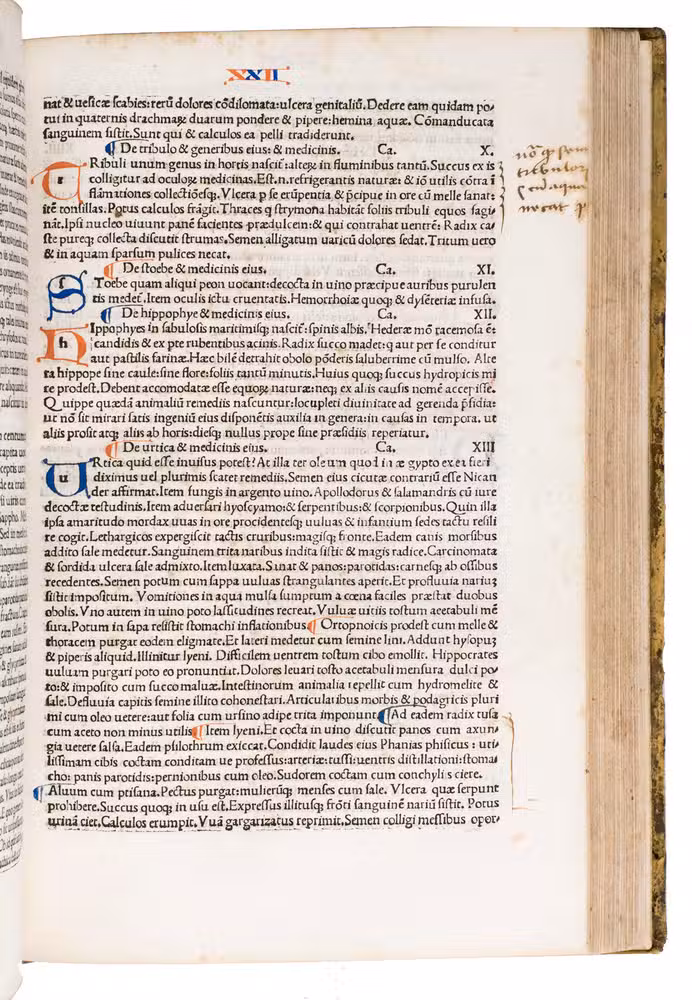 XXII
nat & uesicæ scabies:rerū dolores cōdilomata:ulcera genitaliū.Dedere eam quidam po/
tui in quaternis drachmaʒ duarum pondere & pipere:hemina aquæ. Cōmanducata
sanguinem sistit.Sunt qui & calculos ea pelli tradiderunt.
¶ De tribulo & generibus eius: & medicinis. Ca. X.
TRibuli unum genus in hortis nascit:alteʒ in fluminibus tantū.Succus ex is
colligitur ad oculoʒ medicinas.Est.n.refrigerantis naturæ: & iō utilis cōtra ī
flāmationes collectiōesqʒ.Vlcera p se erūpentia & p̄cipue in ore cū melle sanat:
itē tonsillas.Potus calculos frāgit.Thraces q strymona habitāt foliis tribuli equos sagi/
nāt.Ipsi nucleo uiuunt panē facientes prædulcem:& qui contrahat uentrē: Radix ca/
ste pureqʒ collecta discutit strumas.Semen alligatum uaricū dolores sedat.Tritum uero
& in aquam sparsum pulices necat.
¶ De stoebe & medicinis eius. Ca. XI.
SToebe quam aliqui peon uocant:decocta in uino præcipue auribus purulen
tis medet.Item oculis ictu cruentatis.Hemorrhoiæ quoqʒ & dysēteriæ infusa.
¶ De hippophye & medicinis eius. Ca. XII.
HIppophyes in sabulosis maritimisqʒ nascit:spinis albis.Hederæ mō racemosa ē:
candidis & ex pte rubentibus acinis.Radix succo madet:q aut per se conditur
aut pastilis farinæ.Hæc bilē detrahit obolo pōderis saluberrime cū mulso. Alte
ra hippope sine caule:sine flore:foliis tantū minutis.Huius quoqʒ succus hydropicis mi
re prodest.Debent accomodatæ esse equoʒ naturæ:neqʒ ex aliis causis nomē accepisse.
Quippe quædā animaliū remediis nascuntur:locupleti diuinitate ad gerenda p̄sidia:
ut nō sit mirari satis ingeniū eius disponētis auxilia in genera:in causas in tempora. ut
aliis prosit atqʒ aliis ab horis:diesqʒ nullus prope sine præsidiis reperiatur.
¶ De urtica & medicinis eius. Ca. XIII
URtica quid esse inuisus potest? At illa ter oleum quod in ægypto ex ea fieri
diximus uel plurimis scatet remediis.Semen eius cicutæ contrariū esse Nican
der affirmat.Item fungis in argento uino.Apollodorus & salamandris cū iure
decoctæ testudinis.Item aduersari hyoscyamo:& serpentibus:& scorpionibus.Quin illa
ipsa amaritudo mordax uuas in ore procidentesqʒ uuluas & infantium sedes tactu resili
re cogit.Lethargicos expergiscit tactis cruribus:magisqʒ fronte.Eadem canis morsibus
addito sale medetur.Sanguinem trita naribus indita sistit & magis radice.Carcinomata
& sordida ulcera sale admixto.Item luxata.Sanat & panos:parotidas:carnesqʒ ab ossibus
recedentes.Semen potum cum sappa uuluas strangulantes aperit.Et profluuia nariuʒ
sistit impositum. Vomitiones in aqua mulsa sumptum a cœna faciles præstat duobus
obolis.Vno autem in uino poto lassitudines recreat.Vuluæ uitiis tostum acetabuli mē
sura.Potum in sapa resistit stomachi inflationibus¶ Ortopnoicis prodest cum melle &
thoracem purgat eodem eligmate.Et lateri medetur cum semine lini.Addunt hysopuʒ
& piperis aliquid.Illinitur lyeni. Difficilem uentrem tostum cibo emollit. Hippocrates
uuluam purgari poto eo pronuntiat.Dolores leuari tosto acetabuli mensura dulci po/
to:& imposito cum succo maluæ.Intestinorum animalia repellit cum hydromelite &
sale.Defluuia capitis semine illito cohonestari.Articularibus morbis & podagricis pluri
mi cum oleo uetere:aut folia cum ursino adipe trita imponunt¶Ad eadem radix tusa
cum aceto non minus utilis¶Item lyeni.Et cocta in uino discutit panos cum axun/
gia uetere salsa.Eadem psilothrum exiccat.Condidit laudes eius Phanias phisicus: uti/
lissimam cibis coctam conditam ue professus:arteriæ:tussi:uentris distillationi:stoma/
cho: panis parotidis:pernionibus cum oleo.Sudorem coctam cum conchyliis ciere.
¶Aluum cum ptisana.Pectus purgat:mulieruqʒ menses cum sale. Vlcera quæ serpunt
prohibere.Succus quoqʒ in usu est.Expressus illitusqʒ frōti sanguinē nariū sistit. Potus
urinā ciet.Calculos erumpit.Vuā gargarizatus reprimit.Semen colligi messibus opor/